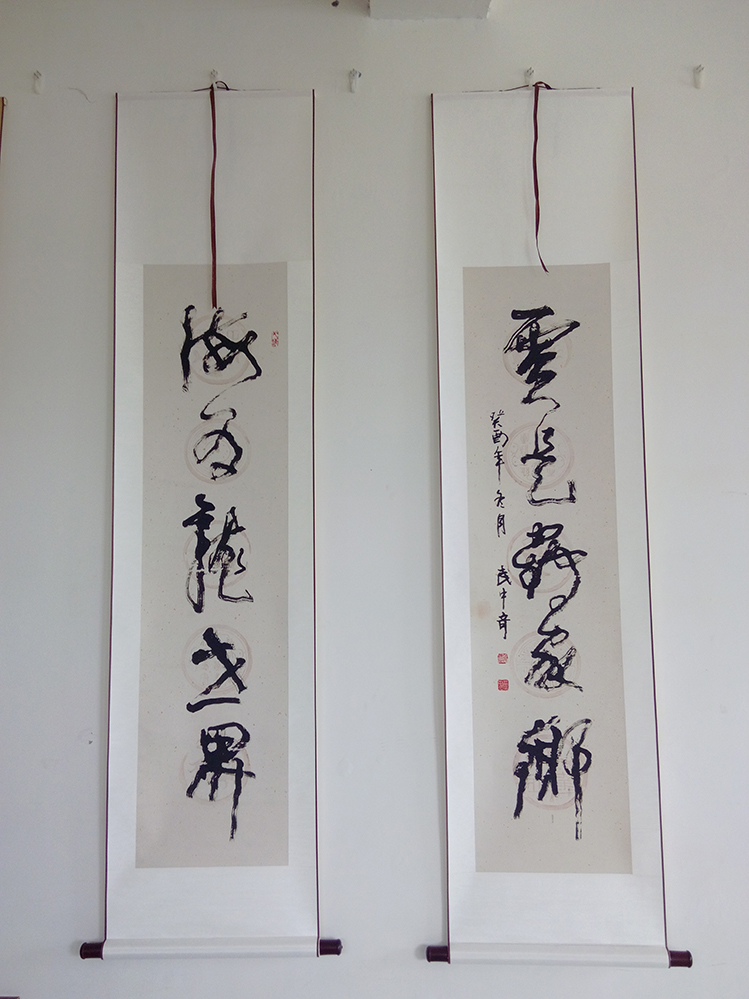 海為龍世界
雲是鶴家鄉
癸酉年冬月 武中奇